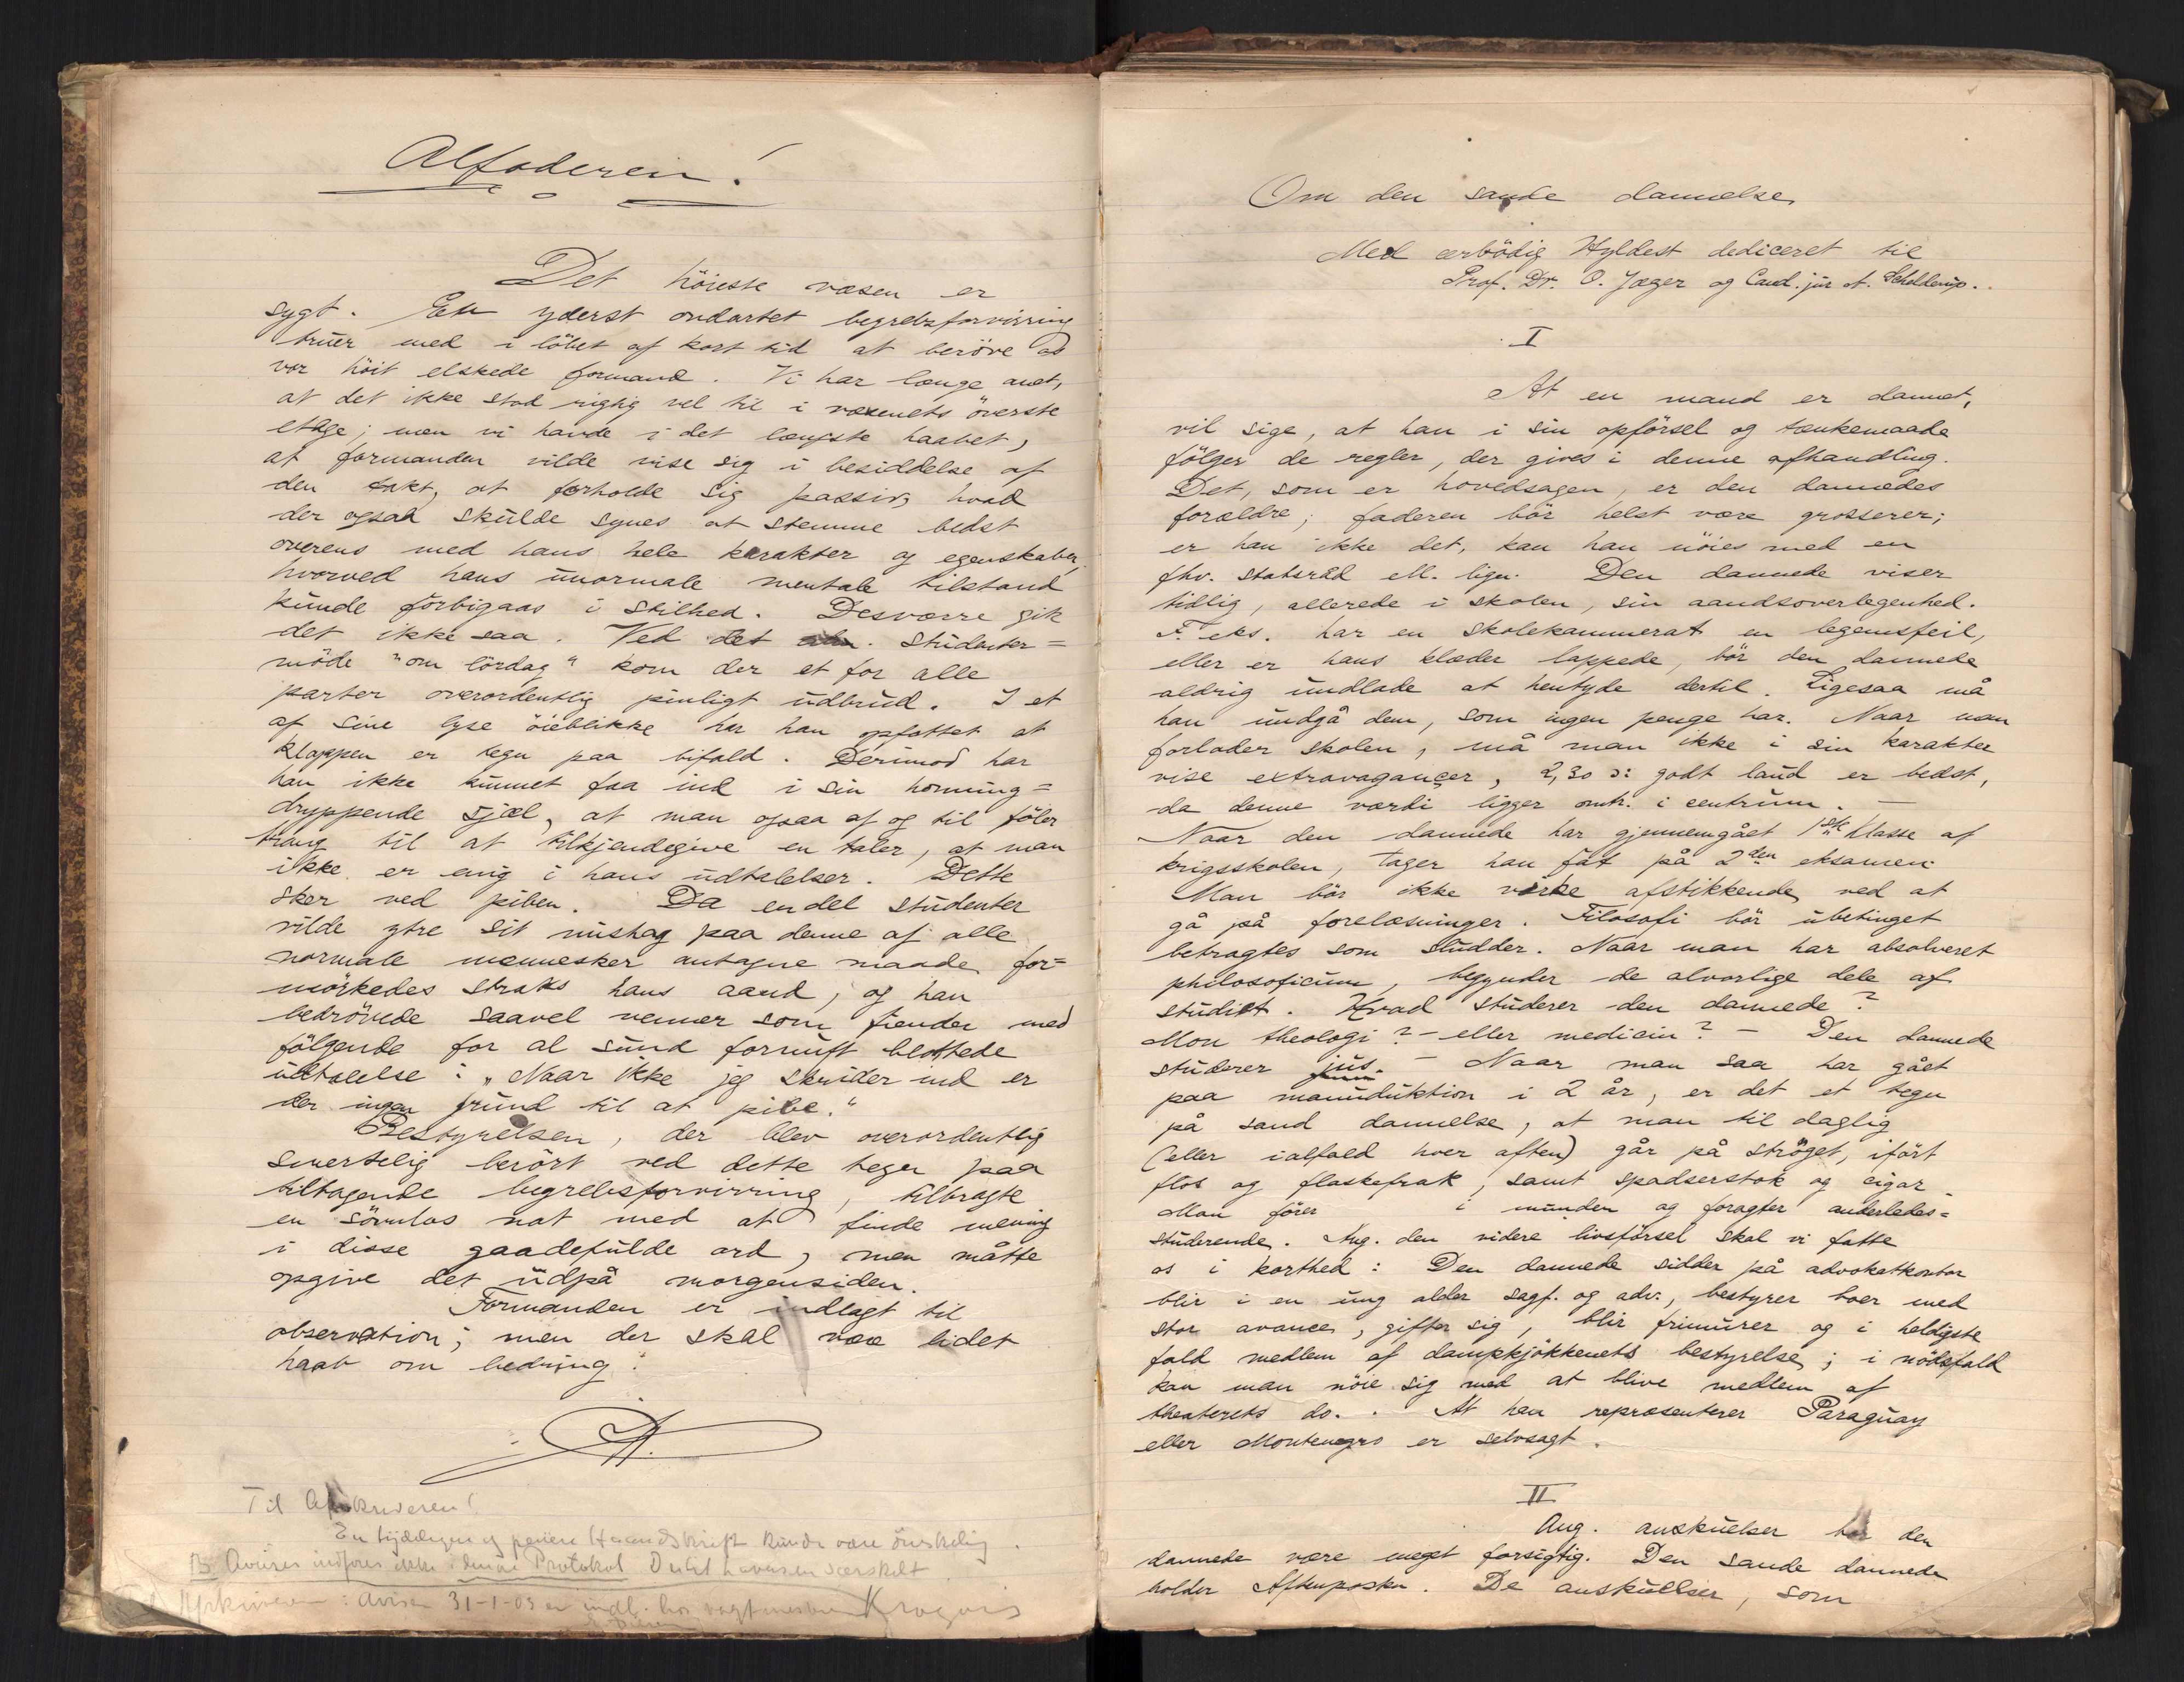 Alfaderen!
Det höieste væsen er
sygt. En yderst ondartet begrebsforvirring
truer med i löbet af kort tid at beröve os
vor höit elskede formand. Vi har længe anet,
at det ikke stod rigtig vel til i væsenets överste
etage; men vi havde i det længste haabet,
at formanden vilde vise sig i besiddelse af
den takt, at forholde sig passiv, hvad
der ogsaa skulde synes at stemme bedst
overens med hans hele karakter og egenskaber,
hvorved hans unormale mentale tilstand
kunde forbigaaes i stilhed. Desværre gik
det ikke saa. Ved det alm. studenter=
möde "om lördag" kom der et for alle
parter overordentlig pinligt udbrud. I et
af sine lyse öieblikke har han opfattet at
klappen er tegn paa bifald. Derimod har
han ikke kunnet faa ind i sin honning=
dryppende sjæl, at man ogsaa af og til föler
trang til at tilkjendegive en taler, at man
ikke er enig i hans udtalelser. Dette
sker ved piben. Da endel studenter
vilde ytre sit mishag paa denne af alle
normale mennesker antagne maade, for=
mörkedes straks hans aand, og han
bedrövede saavel venner som fiender med
fölgende for al sund fornuft blottede
udtalelse: „Naar ikke jeg skrider ind er
der ingen grund til at pibe."
Bestyrelsen, der blev overordentlig
smertelig berört ved dette tegn paa
tiltagende begrebsforvirring, tilbragte
en sövnlös nat med at finde mening
i disse gaadefulde ord, men måtte
opgive det udpå morgensiden.
Formanden er indlagt til
observation; men der skal være lidet
haab om bedring.
A.
Til Afskriveren!
En tydeligere og penere Haandskrift kunde være önskelig.
NB Aviser indföres ikke i denne Protokol Dertil haves en særskilt
: Avisen 31-1-03 er indl. hos vagtmesteren Krogvig
Om den sande dannelse
Med ærbödig Hyldest dediceret til
Prof. Dr. O. Jæger og Cand. jur A. Schelderup.
I
At en mand er dannet,
vil sige, at han i sin opförsel og tænkemaade
fölger de regler, der gives i denne afhandling.
Det, som er hovedsagen, er den dannedes
forældre; faderen bör helst være grosserer;
er han ikke det, kan han nöies med en
fhv. statsråd ell. lign. Den dannede viser
tidlig, allerede i skolen, sin aandsoverlegenhed.
F. eks. har en skolekammerat en legemsfeil,
eller er hans klæder lappede, bör den dannede
aldrig undlade at hentyde dertil. Ligesaa må
han undgå dem, som ingen penge har. Naar man
forlader skolen, må man ikke i sin karakter
vise extravagancer, 2,30 ɔ: godt laud er bedst,
da denne værdi ligger omtr. i centrum. —
Naar den dannede har gjennemgået 1ste klasse af
krigsskolen, tager han fat på 2den eksamen.
Man bör ikke virke afstikkende ved at
gå på forelæsninger. Filosofi bör ubetinget
betragtes som sludder. Naar man har absolveret
philosoficum, begynder de alvorlige dele af
studiet. Hvad studerer den dannede?
Mon theologi? - eller medicin? - Den dannede
studerer jus. - Naar man saa har gået
paa manuduktion i 2 år, er det et tegn
på sand dannelse, at man til daglig
(eller ialfald hver aften) går på ströget, ifört
flos og flaskefrak, samt spadserstok og cigar.
Man förer i munden og foragter anderledes=
studerende. Ang. den videre livsförsel skal vi fatte
os i korthed: Den dannede sidder på advokatkontor
blir i en ung alder sagf. og adv., bestyrer boer med
stor avance, gifter sig, blir frimurer og i heldigste
fald medlem af dampkjökkenets bestyrelse; i nödsfald
kan man nöie sig med at blive medlem af
theaterets do. . At han repræsenterer Paraguay
eller Montenegro er selvsagt.
II
Ang. anskuelser bör den
dannede være meget forsigtig. Den sande dannede
holder Aftenposten. De anskuelser, som